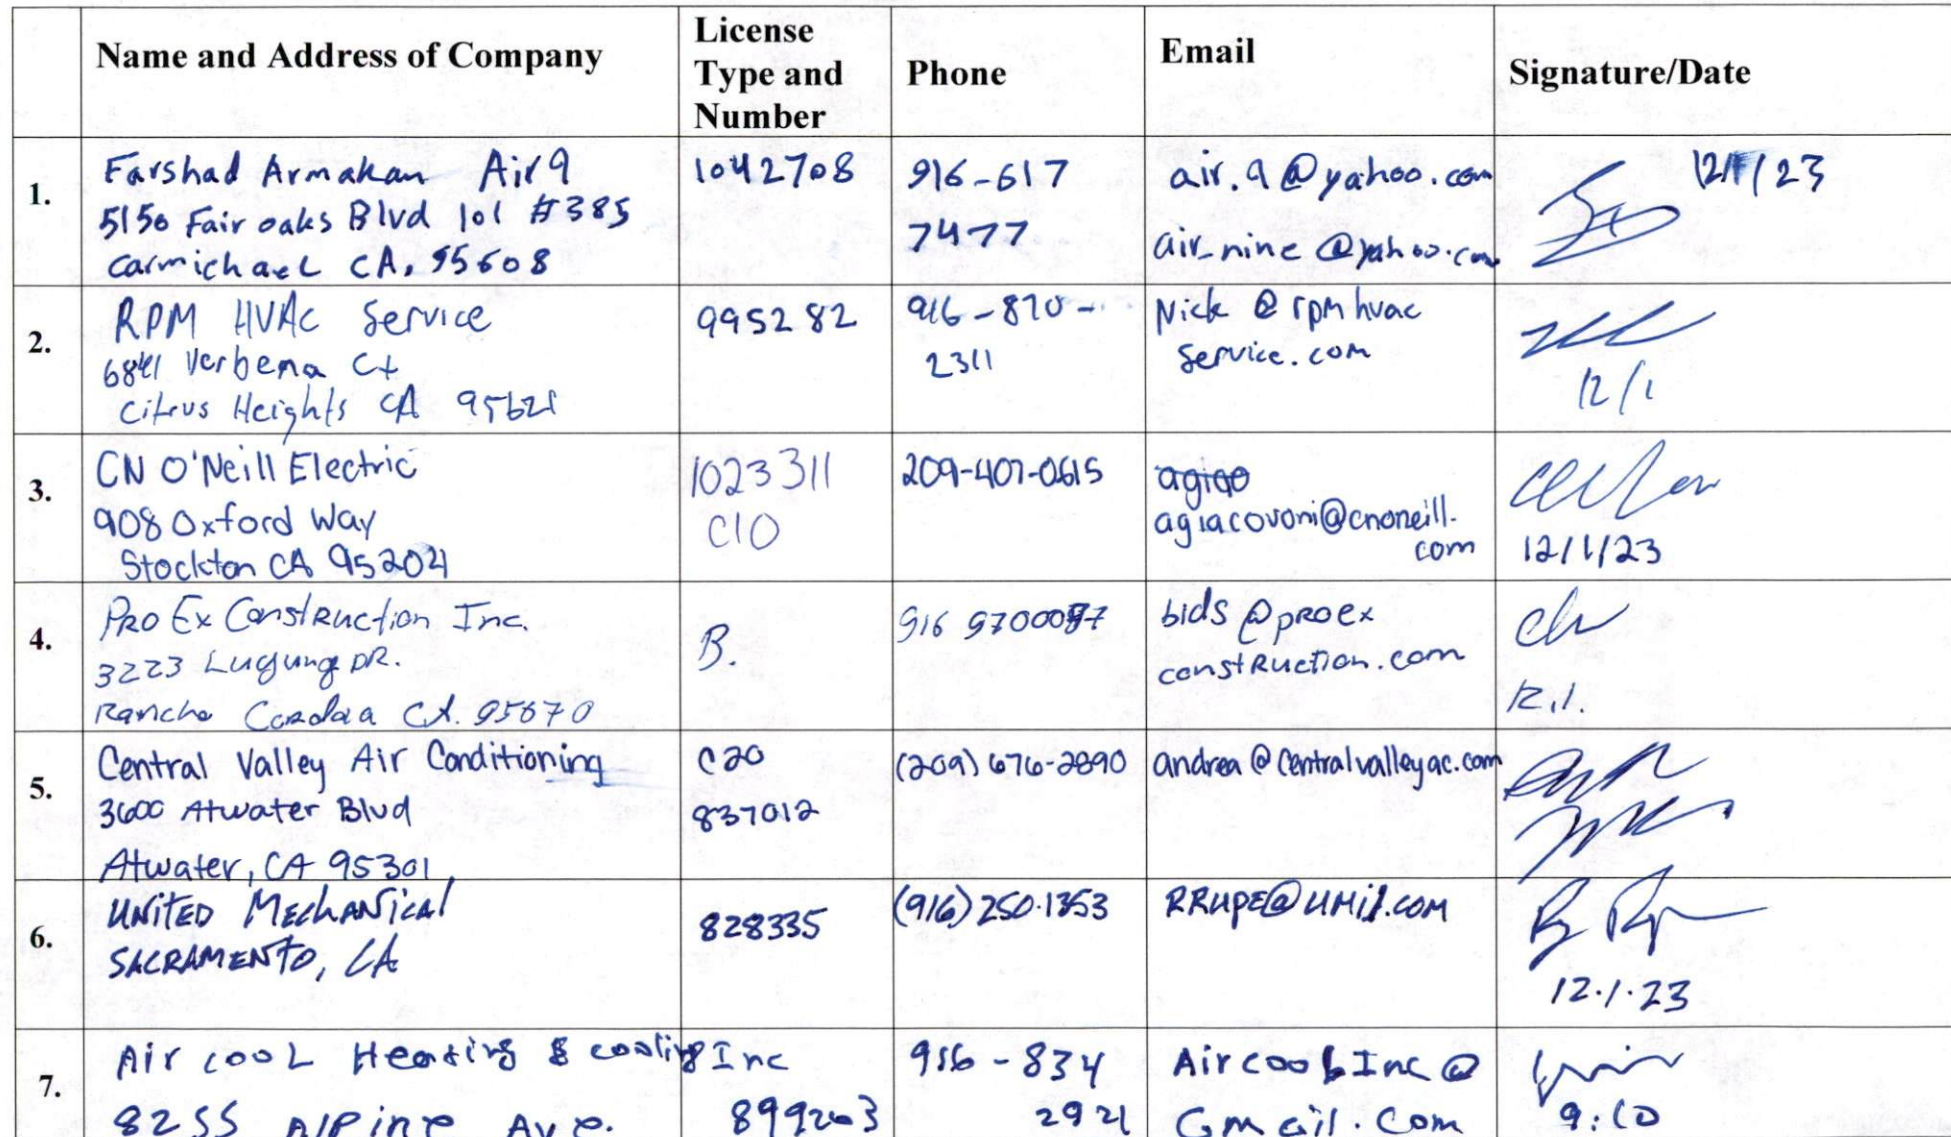 Name and Address of Company
License
Type and
Number
Phone
Email
Signature/Date
1.
Farshad Armakan Air 9
5150 Fair oaks Blvd 101 #385
Carmichael CA. 95608
1042708
916-617
7477
air.9@yahoo.com
air_nine@yahoo.com
12/1/23
2.
RPM HVAC Service
6841 Verbena Ct
Citrus Heights CA 95621
995282
916-870-
2311
Nick@rpmhvac
service.com
12/1
3.
CN O'Neill Electric
908 Oxford Way
Stockton CA 95204
1023311
C10
209-407-0615
agiao
agiacovoni@cnoneill.
com
12/1/23
4.
Pro Ex Construction Inc.
3223 Luyung DR.
Rancho Cordova CA. 95670
B.
916 9700097
bids@proex
construction.com
12.1.
5.
Central Valley Air Conditioning
3600 Atwater Blvd
Atwater, CA 95301
C20
837012
(209) 676-2890
andrea@centralvalleyac.com
6.
UNITED MECHANICAL
SACRAMENTO, CA
828335
(916) 250-1353
12.1.23
7.
Air cooL Heating & cooling Inc
8255 Alpine Ave.
899203
916-834
2921
AircoolInc@
Gmail.Com
9:10